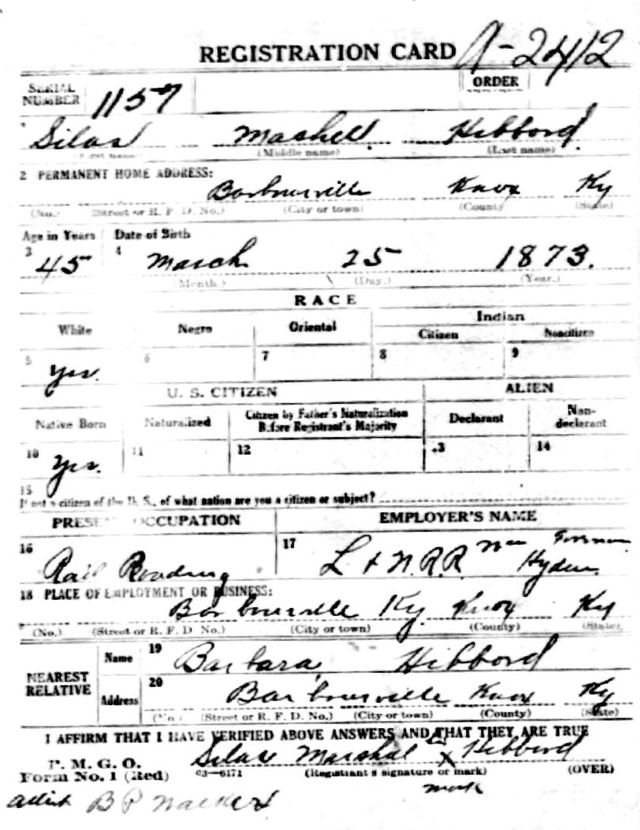 REGISTRATION CARD A-2412
SERIAL NUMBER 1157 ORDER
Silas Mashell Hibbord
(Middle name) (Last name)
2 PERMANENT HOME ADDRESS:
Barbourville Knox Ky
(No.) (Street or R. F. D. No.) (City or town) (County) (State)
Age in Years Date of Birth
3 45 4 March 25 1873.
(Month.) (Day.) (Year.)
RACE
White Negro Oriental Indian
Citizen Noncitizen
5 Yes. 6 7 8 9
U. S. CITIZEN ALIEN
Native Born Naturalized Citizen by Father's Naturalization Before Registrant's Majority Declarant Non-declarant
10 Yes. 11 12 13 14
15
If not a citizen of the U. S., of what nation are you a citizen or subject?
PRESENT OCCUPATION EMPLOYER'S NAME
16 Rail Roading 17 L & N. R.R. Wm Hyden
18 PLACE OF EMPLOYMENT OR BUSINESS:
Barbourville Ky Knox Ky
(No.) (Street or R. F. D No.) (City or town) (County) (State)
NEAREST RELATIVE Name 19 Barbara Hibbord
Address 20 Barbourville Knox Ky
(No.) (Street or R. F. D. No.) (City or town) (County) (State)
I AFFIRM THAT I HAVE VERIFIED ABOVE ANSWERS AND THAT THEY ARE TRUE
P. M. G. O. Silas Marshal X Hibbord
Form No. 1 (Red) 03-6171 (Registrant's signature or mark) (OVER)
mark
B P Walker